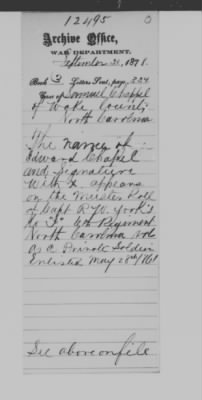 12495
Archive Office,
WAR DEPARTMENT.
September 21, 1871.
Book 3 Letters Sent, page, 224
Case of Samuel Chappel
of Wake County
North Carolina
The name of
Edward Chapel
and Signature
With X, appears
on the Muster Roll
of Capt R. W. York's
Co "I" 6th Regiment
North Carolina
as a Private Soldier
Enlisted May 28th 1861
See above on file